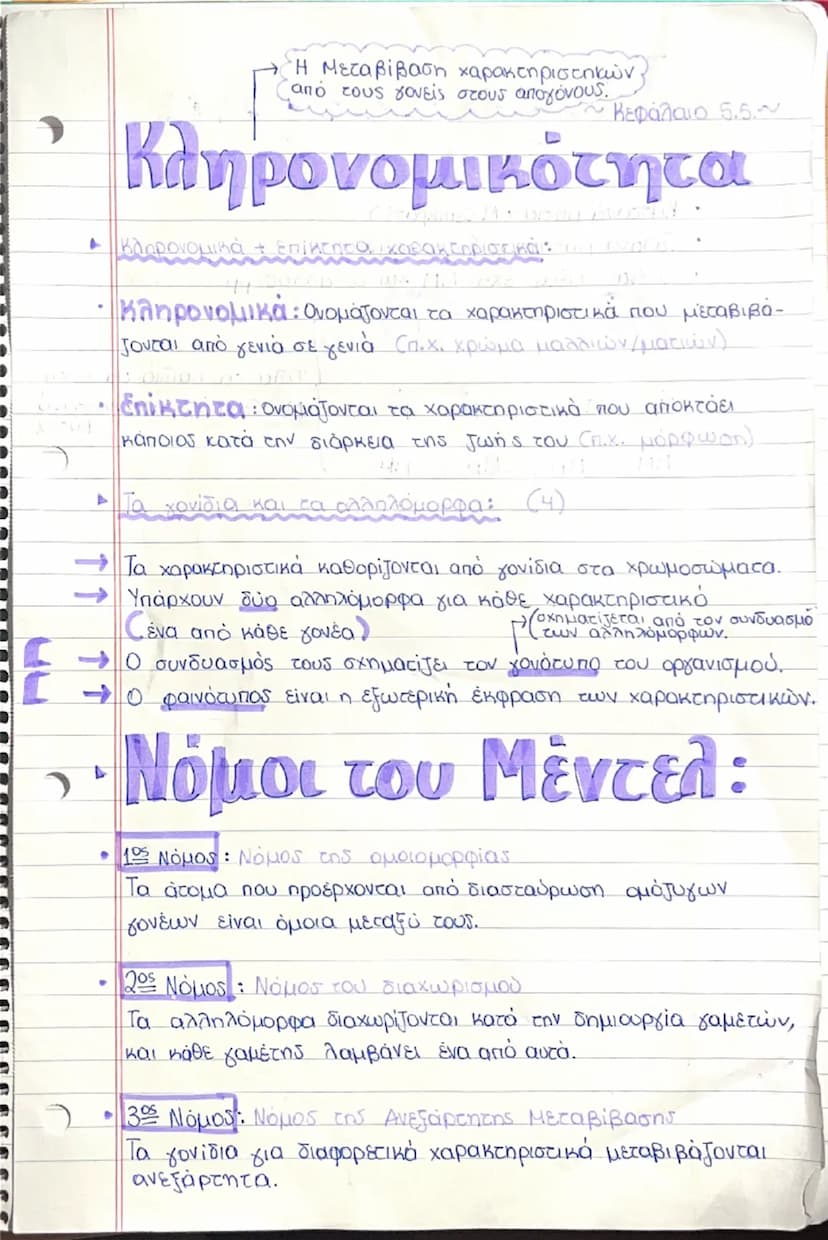 Η Μεταβίβαση χαρακτηριστικών
από τους γονείς στους απογόνους.
~ Κεφάλαιο 5.5.~
Κληρονομικότητα
Κληρονομικά + επίκτητα χαρακτηριστικά:
· Κληρονομικά: Ονομάζονται τα χαρακτηριστικά που μεταβιβά-
ζονται από γενιά σε γενιά (π.χ. χρώμα μαλλιών/ματιών)
· Επίκτητα: ονομάζονται τα χαρακτηριστικά που αποκτάει
κάποιος κατά την διάρκεια της ζωής του (π.χ. μόρφωση)
Τα γονίδια και τα αλληλόμορφα: (4)
→ Τα χαρακτηριστικά καθορίζονται από γονίδια στα χρωμοσώματα.
→ Υπάρχουν δύο αλληλόμορφα για κάθε χαρακτηριστικό
(ένα από κάθε γονέα)
(σχηματίζεται από τον συνδυασμό
των αλληλόμορφων.
→ Ο συνδυασμός τους σχηματίζει τον γονότυπο του οργανισμού.
→ Ο φαινότυπος είναι η εξωτερική έκφραση των χαρακτηριστικών.
Νόμοι του Μέντελ:
• 1ος Νόμος: Νόμος της ομοιομορφίας
Τα άτομα που προέρχονται από διασταύρωση ομόζυγων
γονέων είναι όμοια μεταξύ τους.
• 2ος Νόμος: Νόμος του διαχωρισμού
Τα αλληλόμορφα διαχωρίζονται κατά την δημιουργία γαμετών,
και κάθε γαμέτης λαμβάνει ένα από αυτά.
• 3ος Νόμος: Νόμος της Ανεξάρτητης Μεταβίβασης
Τα γονίδια για διαφορετικά χαρακτηριστικά μεταβιβάζονται
ανεξάρτητα.